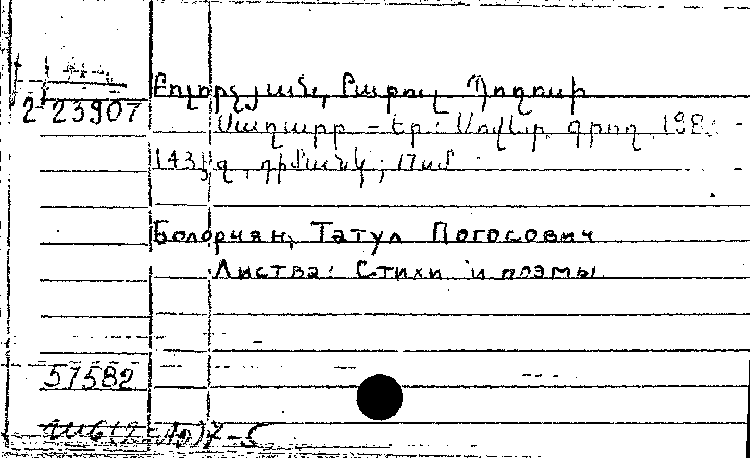 2 23907
Բոլորչյան, Թաթուլ Պողոսի
Սաղարթ - Եր.: Սովետ. գրող, 198
143 էջ, դիմանկ.; 17սմ
Болорчян, Татул Погосович
Листва: Стихи и поэмы
57582